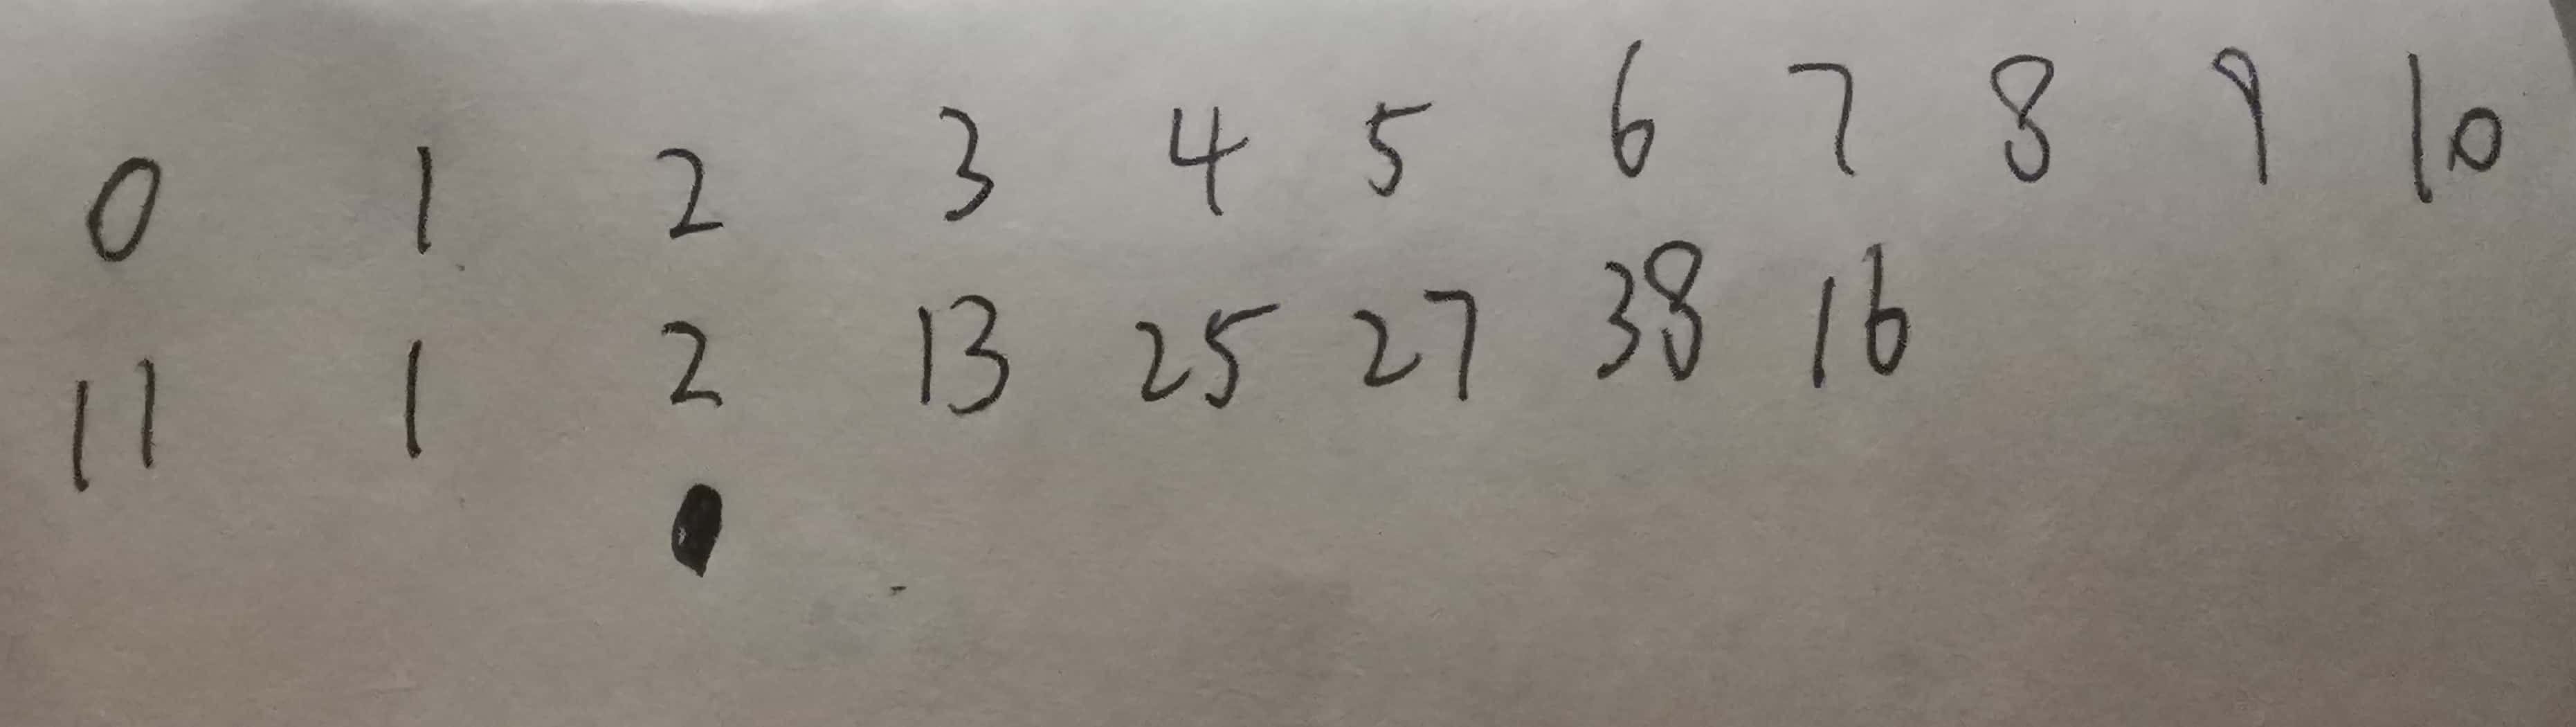 0 1 2 3 4 5 6 7 8 9 10
11 1 2 13 25 27 38 16